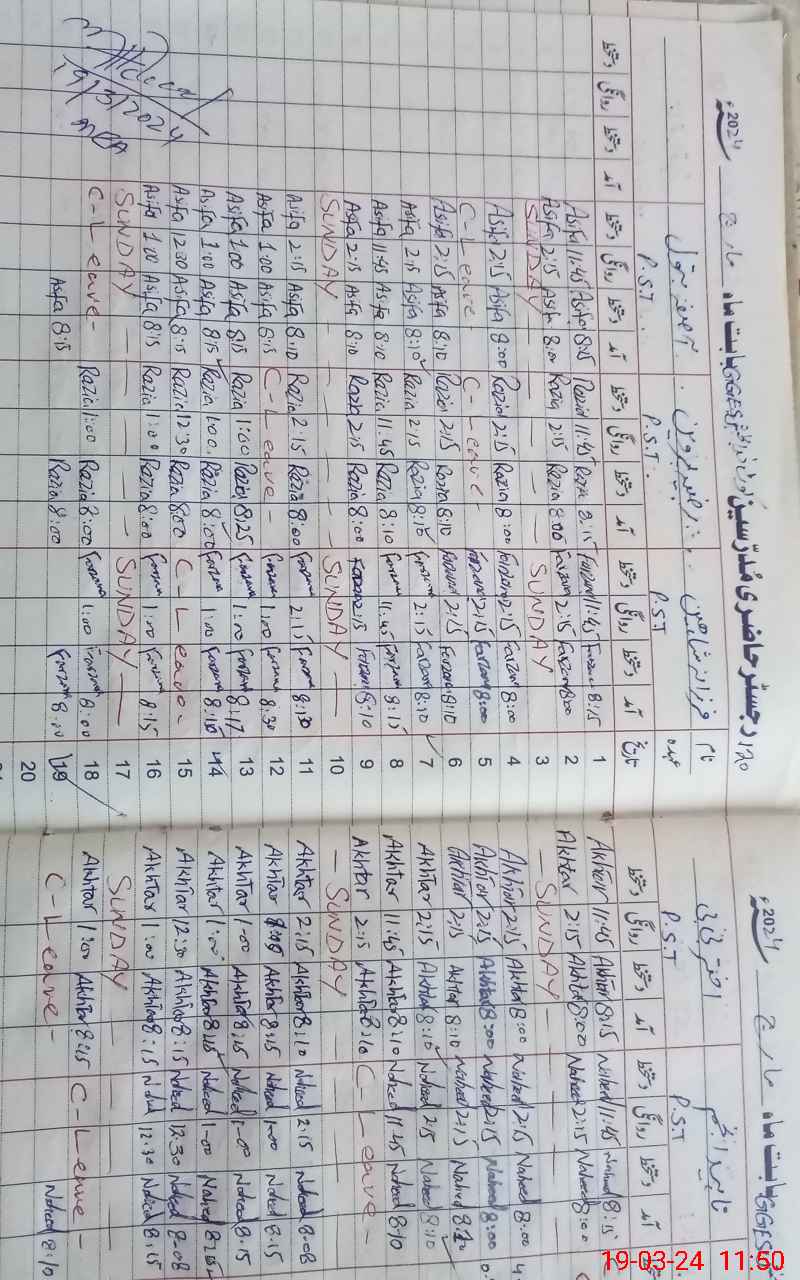 رجسٹر حاضری مدرسین GGES بابت ماہ مارچ 2024ء
GGES بابت ماہ مارچ 2024ء
نام فرزانہ شاہین رضیہ پروین آصفہ بتول
اختر بی بی ناہید انجم
عہدہ P.S.T P.S.T P.S.T
P.S.T P.S.T
تاریخ آمد دستخط روانگی دستخط آمد دستخط روانگی دستخط آمد دستخط روانگی دستخط آمد دستخط روانگی دستخط
آمد دستخط روانگی دستخط آمد دستخط روانگی دستخط
Asifa 11:45 Asifa 8:15 Razia 11:45 Razia 8:15 Farzana 11:45 Farzana 8:15 1 Akhtar 11:45 Akhtar 8:15 Naheed 11:45 Naheed 8:15
Asifa 2:15 Asifa 8:00 Razia 2:15 Razia 8:00 Farzana 2:15 Farzana 8:00 2 Akhtar 2:15 Akhtar 8:00 Naheed 2:15 Naheed 8:00
SUNDAY — — — — SUNDAY 3 — SUNDAY — — —
Asifa 2:15 Asifa 8:00 Razia 2:15 Razia 8:00 Farzana 2:15 Farzana 8:00 4 Akhtar 2:15 Akhtar 8:00 Naheed 2:15 Naheed 8:00
C-Leave C-Leave- Farzana 2:15 Farzana 8:00 5 Akhtar 2:15 Akhtar 8:00 Naheed 2:15 Naheed 8:00
Asifa 2:15 Asifa 8:10 Razia 2:15 Razia 8:10 Farzana 2:15 Farzana 8:10 6 Akhtar 2:15 Akhtar 8:10 Naheed 2:15 Naheed
Asifa 2:15 Asifa 8:10 Razia 2:15 Razia 8:10 Farzana 2:15 Farzana 8:10 7 Akhtar 2:15 Akhtar 8:10 Naheed 2:15 Naheed 8:10
Asifa 11:45 Asifa 8:10 Razia 11:45 Razia 8:10 Farzana 11:45 Farzana 8:15 8 Akhtar 11:45 Akhtar 8:10 Naheed 11:45 Naheed 8:10
Asifa 2:15 Asifa 8:10 Razia 2:15 Razia 8:00 Farzana 2:15 Farzana 8:10 9 Akhtar 2:15 Akhtar 8:10 C-Leave-
SUNDAY — — — — SUNDAY — 10 — SUNDAY — — —
Asifa 2:15 Asifa 8:10 Razia 2:15 Razia 8:00 Farzana 2:15 Farzana 8:30 11 Akhtar 2:15 Akhtar 8:10 Naheed 2:15 Naheed 8-08
Asifa 1:00 Asifa 8:15 C-Leave- Farzana 1:00 Farzana 8:30 12 Akhtar Akhtar 8:15 Naheed 1-00 Naheed 8-15
Asifa 1:00 Asifa 8:15 Razia 1:00 Razia 8:25 Farzana 1:00 Farzana 8:17 13 Akhtar 1-00 Akhtar 8:15 Naheed 1-00 Naheed 8-15
Asifa 1:00 Asifa 8:15 Razia 1:00 Razia 8:00 Farzana 1:00 Farzana 8:15 14 Akhtar 1:00 Akhtar 8:15 Naheed 1-00 Naheed
Asifa 12:30 Asifa 8:15 Razia 12:30 Razia 8:00 C-Leave. 15 Akhtar 12:30 Akhtar 8:15 Naheed 12:30 Naheed 8-08
Asifa 1:00 Asifa 8:15 Razia 1:00 Razia 8:00 Farzana 1:00 Farzana 8:15 16 Akhtar 1:00 Akhtar 8:15 Naheed 12:30 Naheed 8:15
SUNDAY — — — — SUNDAY — 17 SUNDAY — — —
C-Leave- Razia 1:00 Razia 8:00 Farzana 1:00 Farzana 8:00 18 Akhtar 1:00 Akhtar 8:15 C-Leave-
Asifa 8:15 Razia 8:00 Farzana 8:00 19 C-Leave- Naheed 8:10
20
19/3/2024
19-03-24 11:50